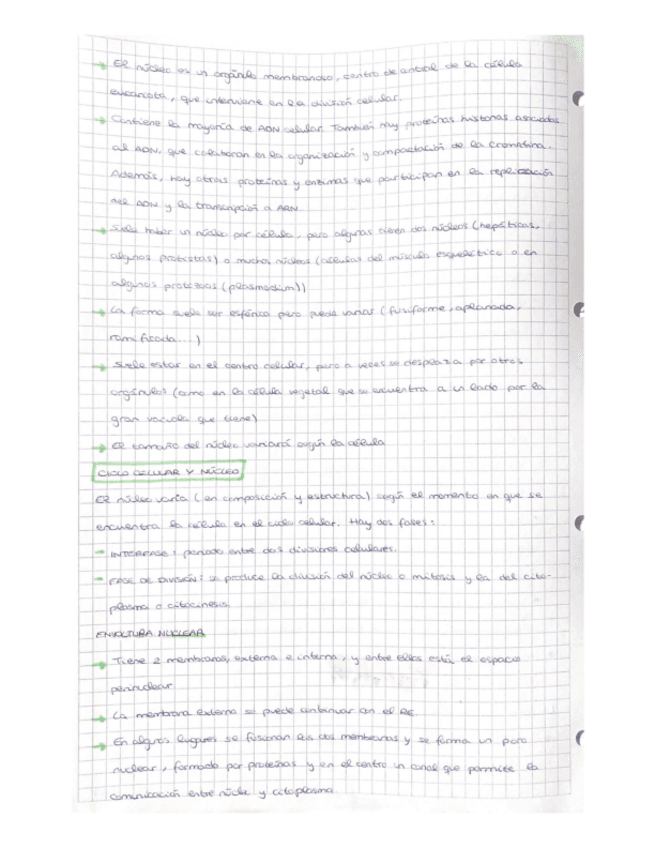 → El núcleo es un orgánulo membranoso, centro de control de la célula
eucariota, que interviene en la división celular.
→ Contiene la mayoría de ADN celular. También hay proteínas histonas asociadas
al ADN, que colaboran en la organización y compactación de la cromatina.
Además, hay otras proteínas y enzimas que participan en la replicación
del ADN y la transcripción a ARN.
→ Suele haber un núcleo por célula, pero algunas tienen dos núcleos (hepáticas,
algunos protistas) o muchos núcleos (células del músculo esquelético o en
algunos protozoos (plasmodium))
→ La forma suele ser esférica pero puede variar (fusiforme, aplanada,
ramificada...)
→ Suele estar en el centro celular, pero a veces se desplaza por otros
orgánulos (como en la célula vegetal que se encuentra a un lado por la
gran vacuola que tiene)
→ El tamaño del núcleo variará según la célula
CICLO CELULAR Y NÚCLEO
El núcleo varía (en composición y estructura) según el momento en que se
encuentra la célula en el ciclo celular. Hay dos fases:
→ INTERFASE: periodo entre dos divisiones celulares.
→ FASE DE DIVISIÓN: se produce la división del núcleo o mitosis y la del cito-
plasma o citocinesis.
ENVOLTURA NUCLEAR
→ Tiene 2 membranas, externa e interna, y entre ellas está el espacio
perinuclear
→ La membrana externa se puede continuar con el RE.
→ En algunos lugares se fusionan las dos membranas y se forma un poro
nuclear, formado por proteínas y en el centro un canal que permite la
comunicación entre núcleo y citoplasma